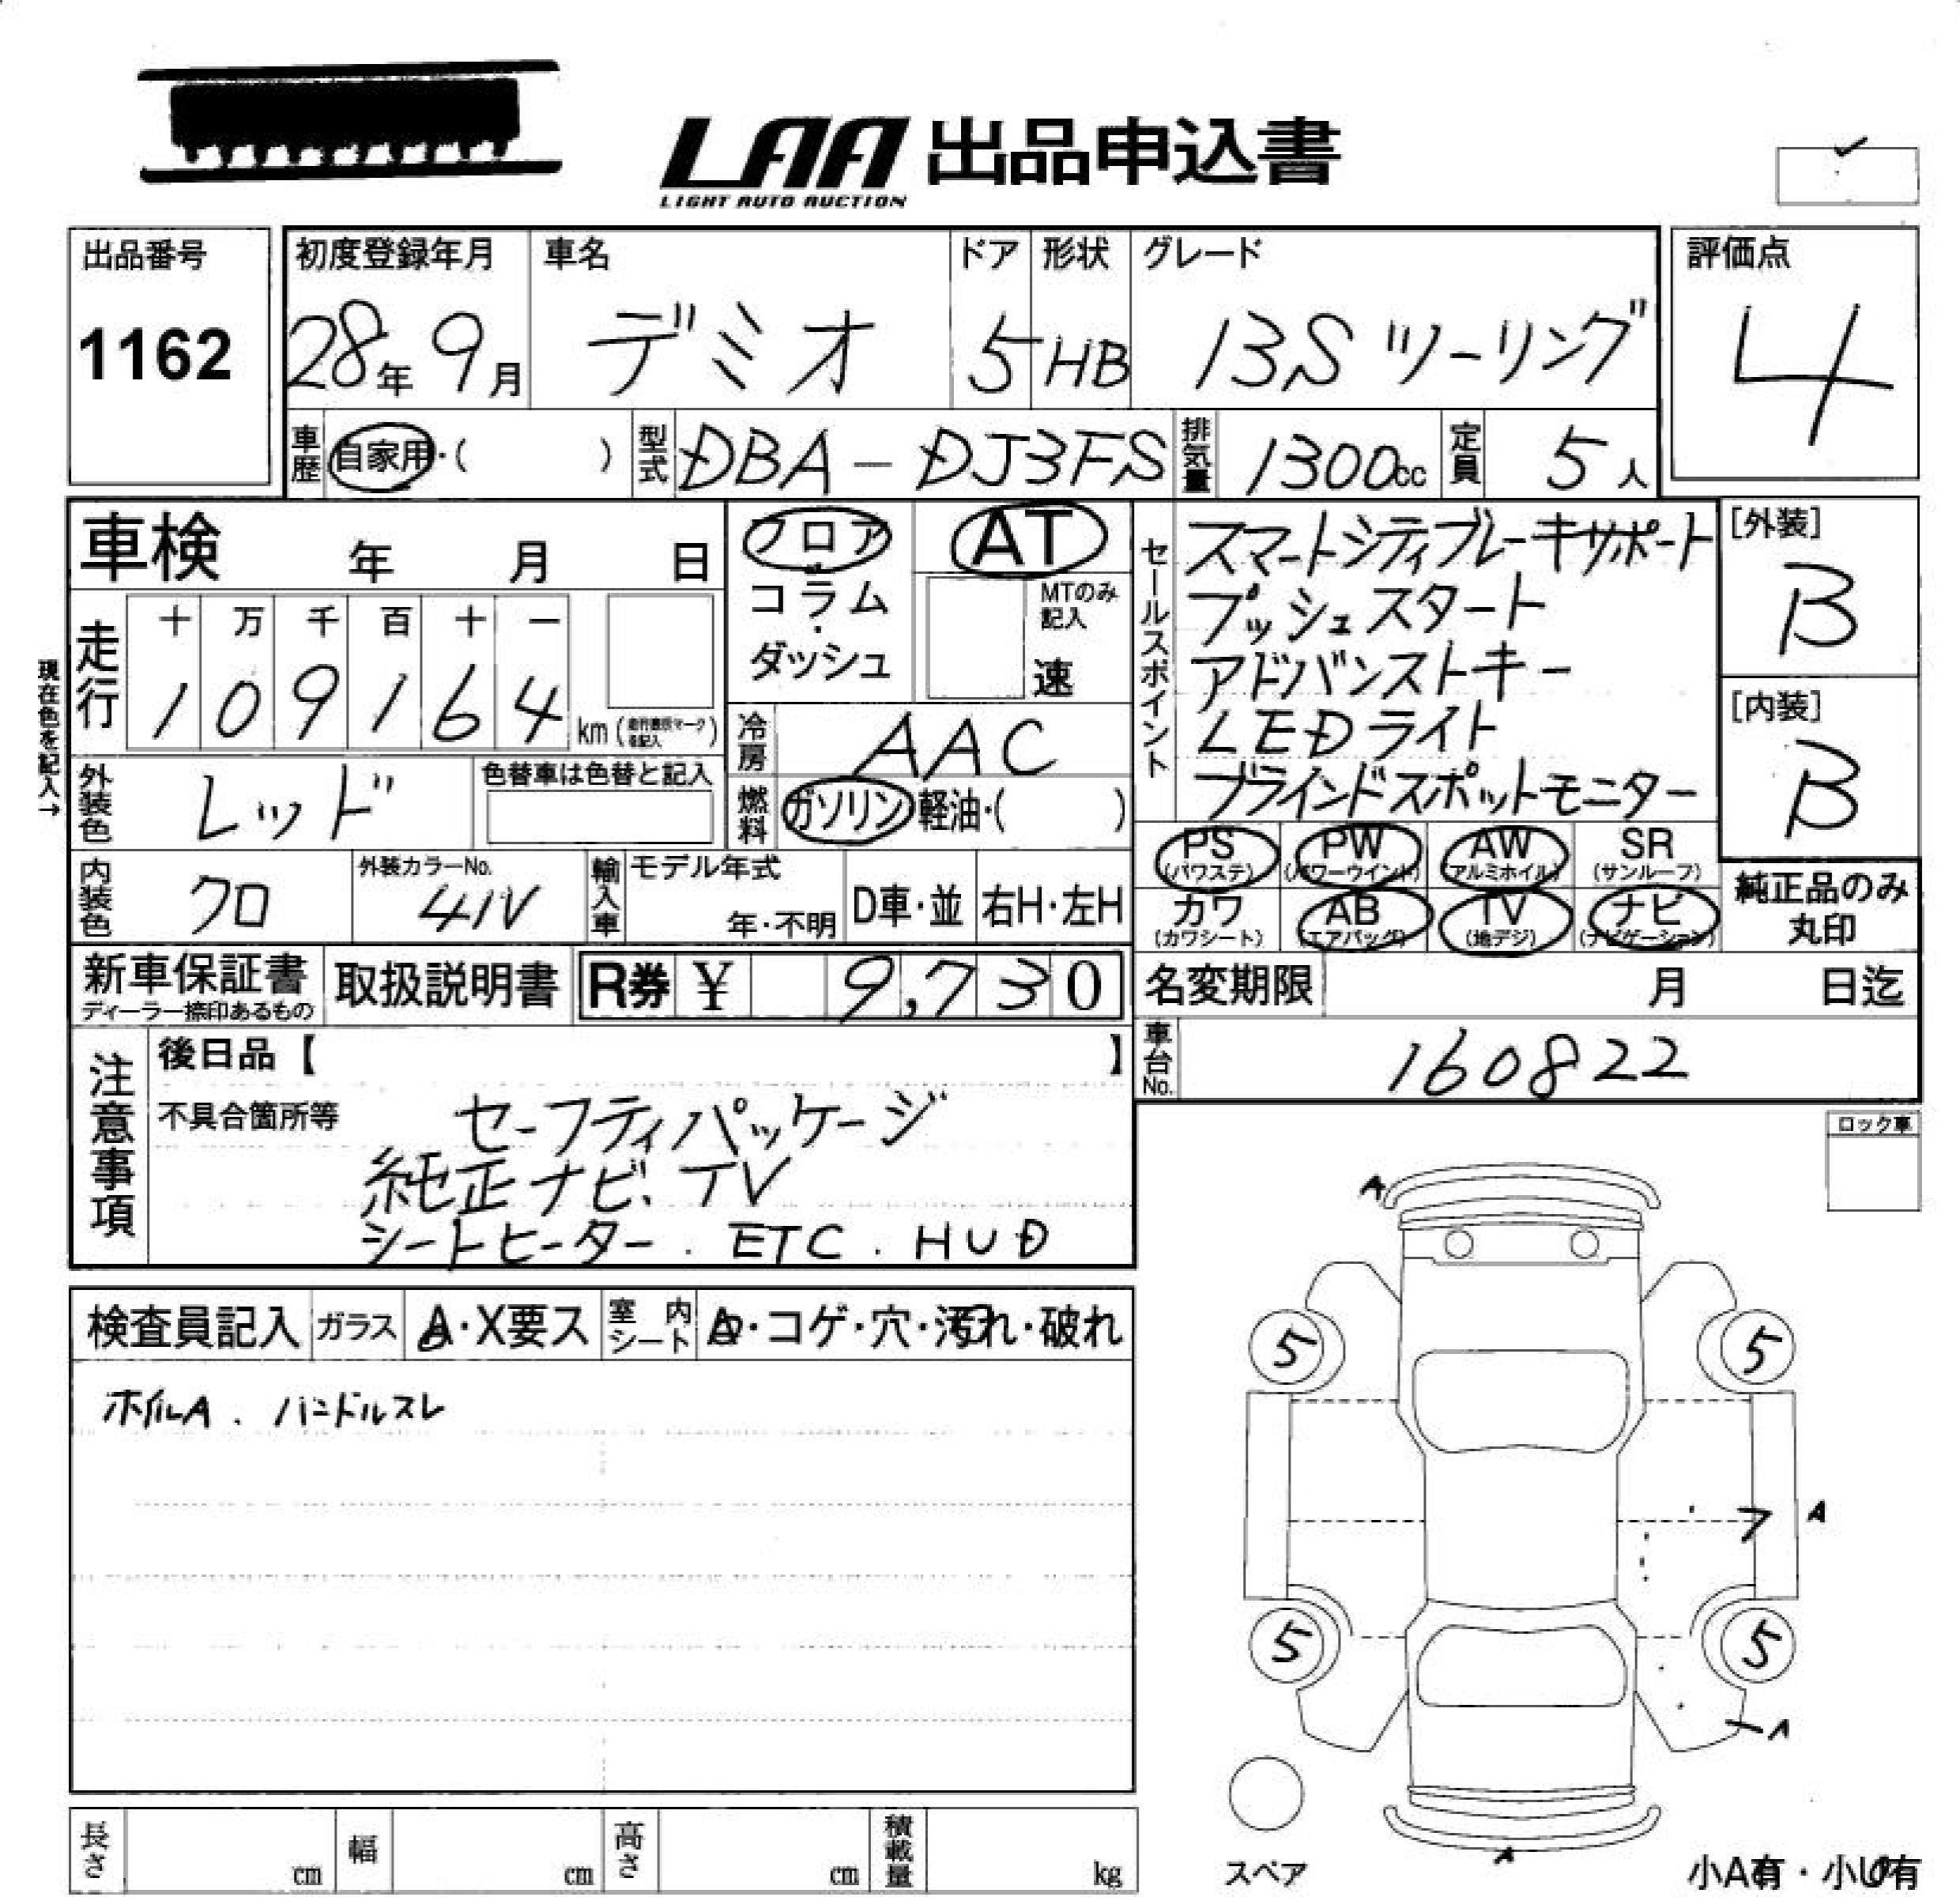 LAA 出品申込書
LIGHT AUTO AUCTION
出品番号
1162
初度登録年月 車名 ドア 形状 グレード
28年9月 デミオ 5 HB 13S ツーリング
評価点
4
車歴 自家用・( ) 型式 DBA-DJ3FS 排気量 1300cc 定員 5人
車検 年 月 日
フロア
コラム
・
ダッシュ
AT
MTのみ
記入
速
現在色を記入→
走行 十 万 千 百 十 一
1 0 9 1 6 4 km
冷房 AAC
外装色 レッド 色替車は色替と記入
燃料 ガソリン 軽油・( )
内装色 クロ 外装カラーNo. 41V 輸入車 モデル年式 年・不明 D車・並 右H・左H
セールスポイント
スマートシティブレーキサポート
プッシュスタート
アドバンストキー
LEDライト
ブラインドスポットモニター
[外装]
B
[内装]
B
PS (パワステ) PW (パワーウインド) AW (アルミホイル) SR (サンルーフ)
カワ (カワシート) AB (エアバッグ) TV (地デジ) ナビ (ナビゲーション)
純正品のみ
丸印
新車保証書 ディーラー捺印あるもの 取扱説明書 R券 ¥ 9,730
名変期限 月 日迄
車台No. 160822
注意事項
後日品【 】
不具合箇所等 セーフティパッケージ
純正ナビ、TV
シートヒーター . ETC . HUD
ロック車
検査員記入 ガラス A・X要ス 室内シート ・コゲ・穴・汚れ・破れ
ホイルA . ハンドルスレ
A
5 5
ア A
5 5
A
A
スペア
小A有・小U有
長さ cm 幅 cm 高さ cm 積載量 kg